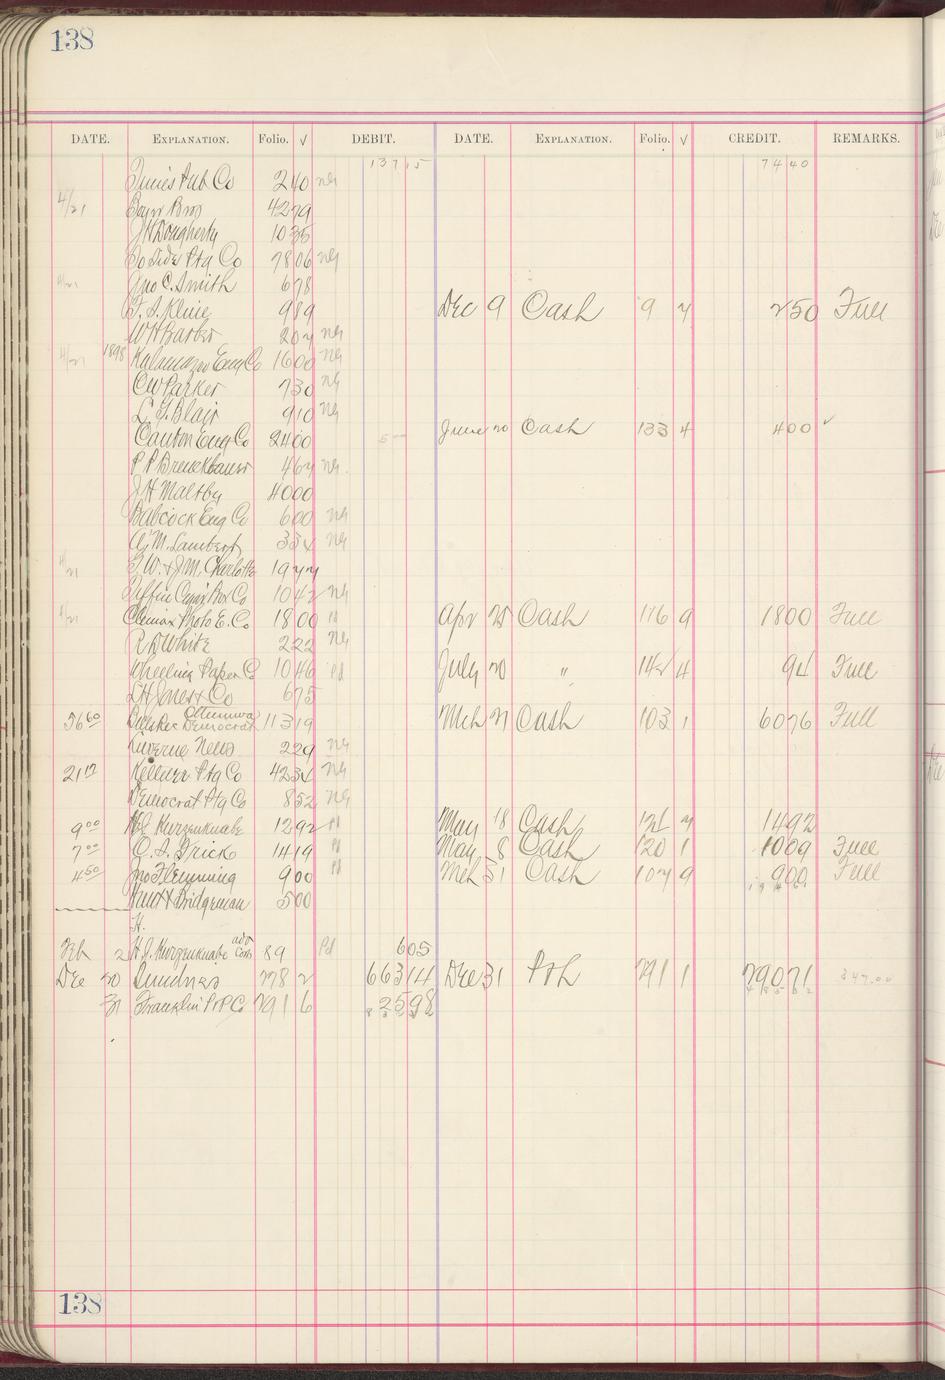 138
DATE. EXPLANATION. Folio. √ DEBIT. DATE. EXPLANATION. Folio. √ CREDIT. REMARKS.
137 15 74 40
Pub Co 240 ng
4/21 Bros 4279
J H Dougherty 1035
Ptg Co 7806 ng
4/21 Jno C. Smith 678
F. S. Kline 989 Dec 9 Cash 9 7 250 Full
W H Barber 207 ng
4/21 1898 Kalamazoo Eng Co 1600 ng
C W Parker 730 ng
L. F. Blair 910 ng
Canton Eng Co 2400 June 20 Cash 133 4 400 ✓
467 ng
J H Maltby 4000
Babcock Eng Co 600 ng
M. Lambert 334 ng
4/21 W. & J. M. 1977
Tiffin Box Co 1042 ng
4/21 Climax Photo E. Co 1800 Pd Apr 25 Cash 116 9 1800 Full
R D White 222 ng
Wheeling Paper Co 1046 Pd July 20 " 142 4 94 Full
L H Jones & Co 675
36 60 Ottumwa Democrat 11319 Mch 21 Cash 103 1 6076 Full
Luverne News 229 ng
21 12 Kellner Ptg Co 4234 ng
Democrat Ptg Co 852 ng
9 00 H J Kurzenknabe 1292 Pd May 18 Cash 121 7 1492
7 00 O. S. Frick 1419 Pd May 8 Cash 120 1 1009 Full
4 50 Jno Flemming 900 Pd Mch 31 Cash 107 9 900 Full
Hunt & Bridgeman 500
H.
Feb 2 H. J. Kurzenknabe adv Com 89 Pd 605
Dec 20 Sundries 278 2 66314 Dec 31 P & L 291 1 79071 347.00
31 Franklin P & P Co 291 6 2598
138